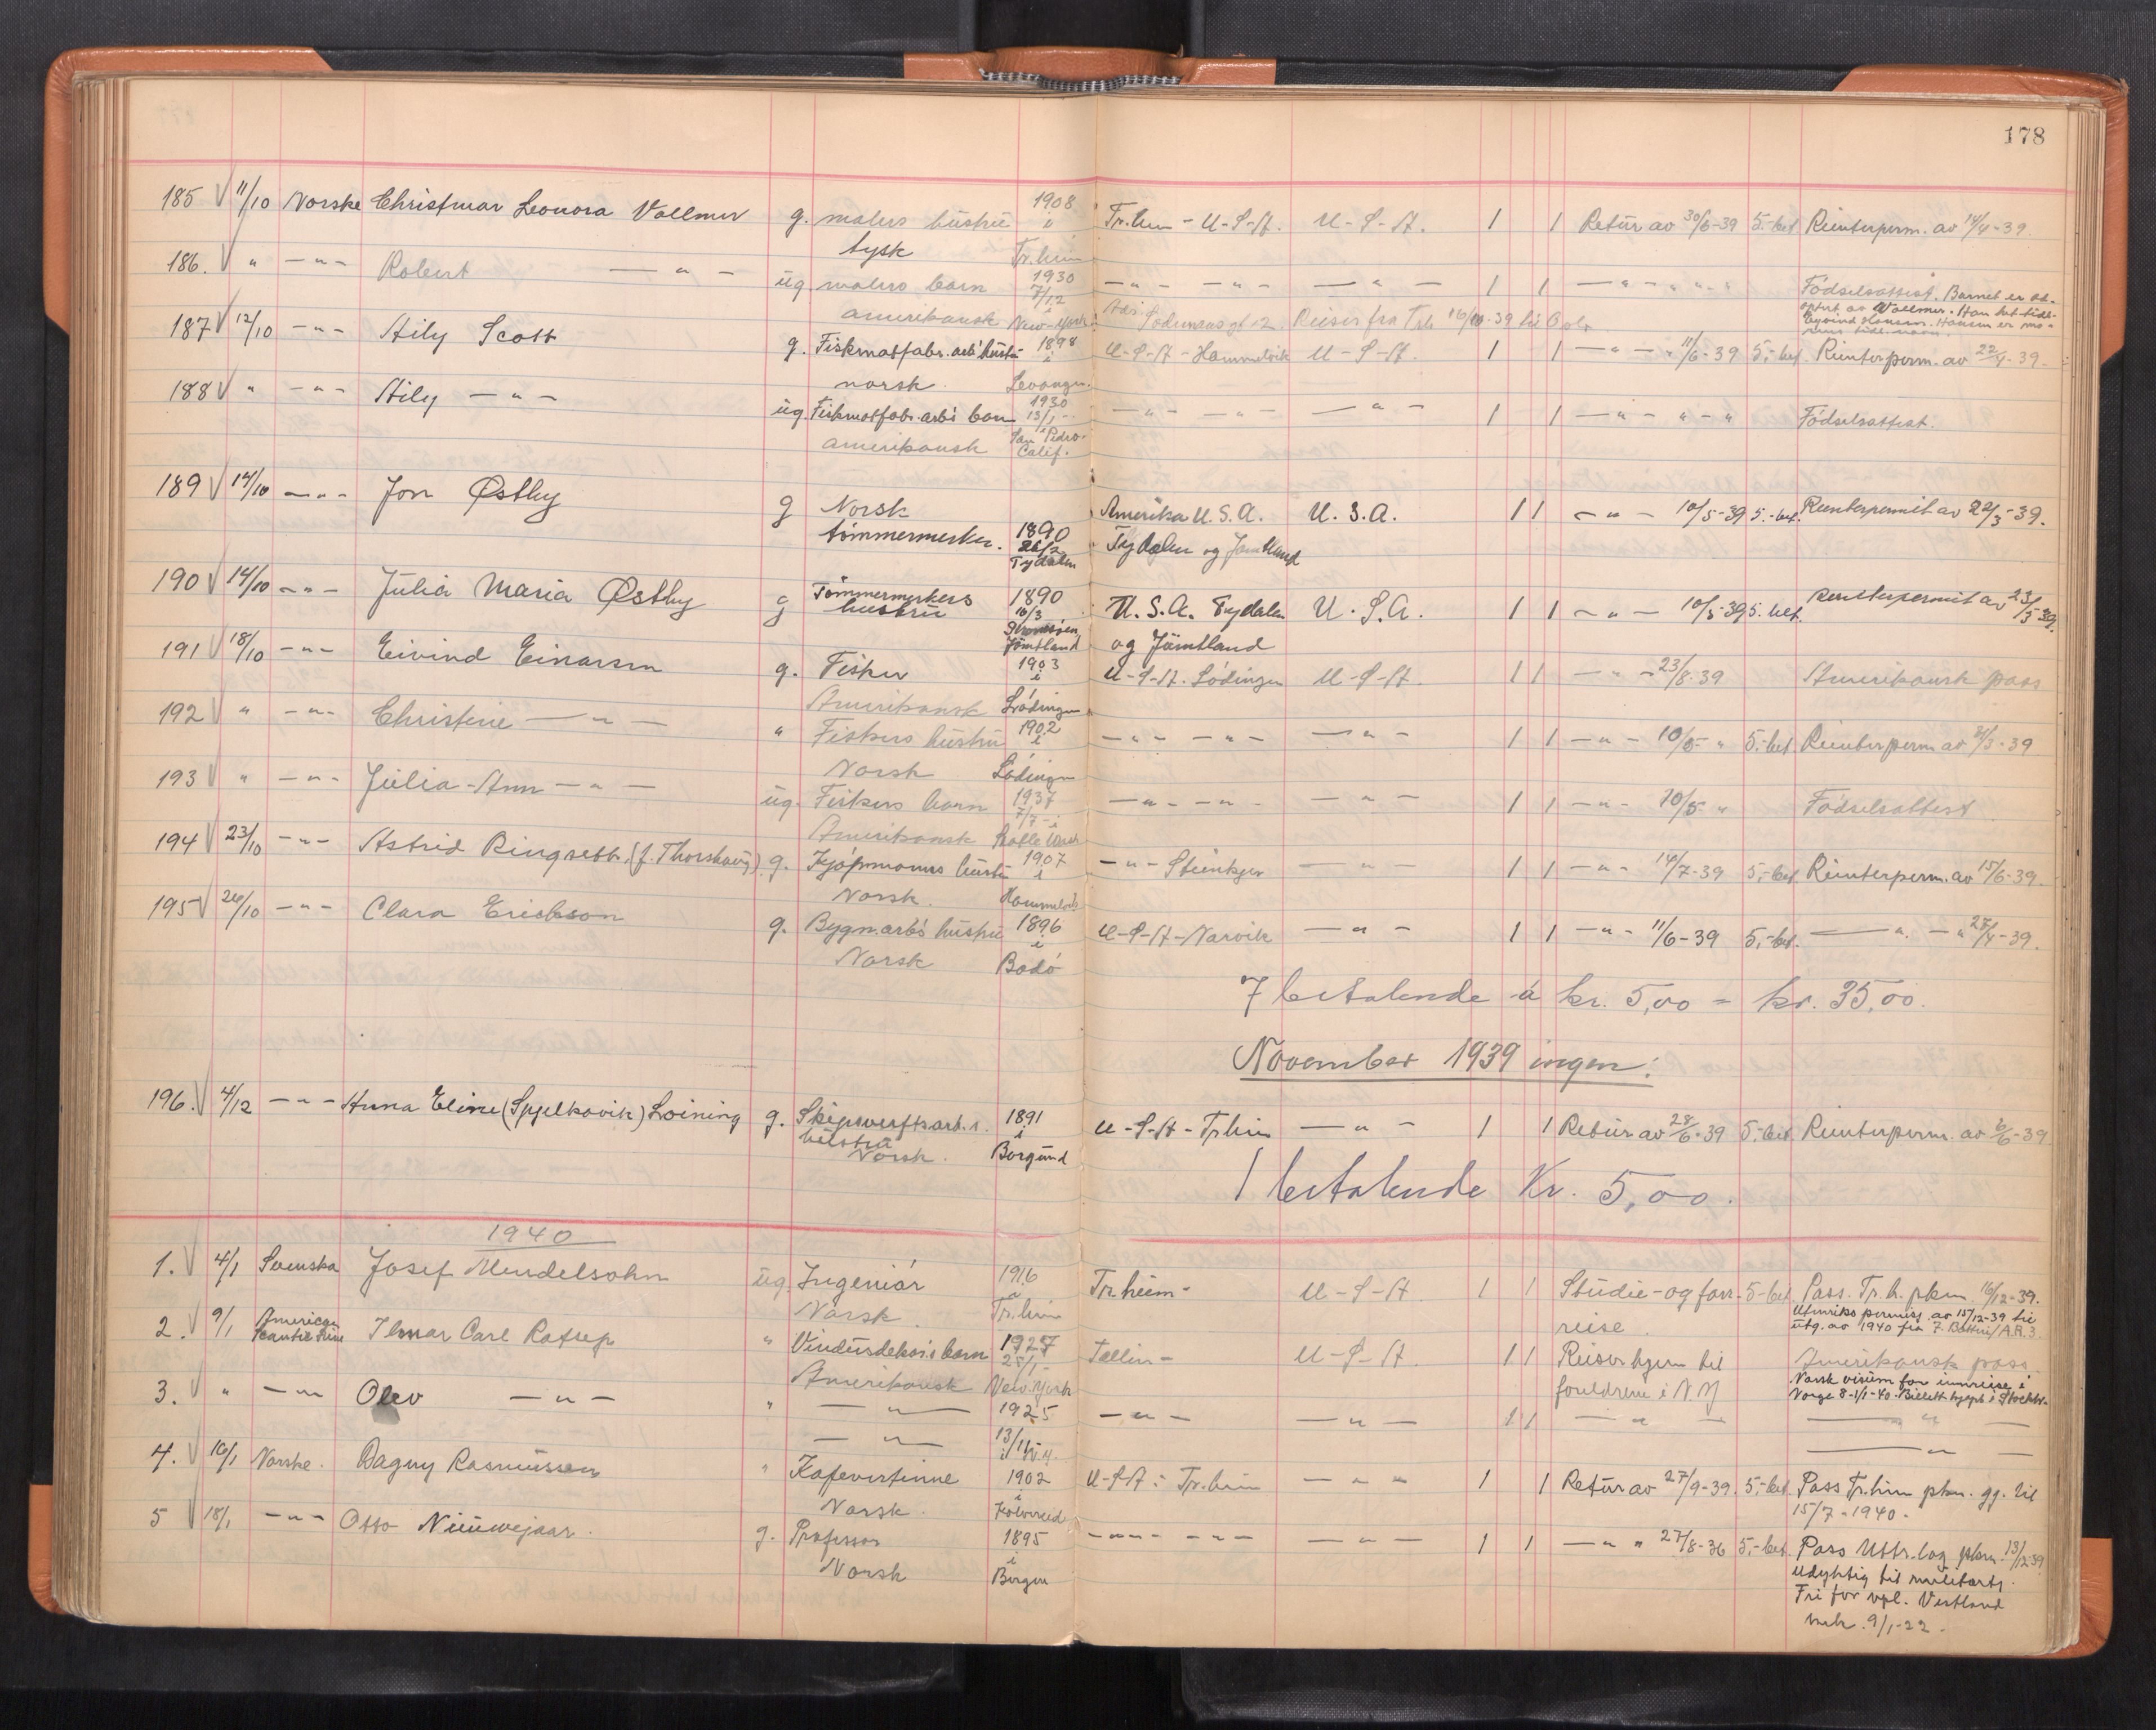 178
185 11/10 Norske Christmar Leonora Vollmer g. malers hustru 1908 Tr.heim - U-S-A. U-S-A. 1 1 Retur av 30/6-39 5.-bet Reenterperm. av 14/4-39.
tysk i Tr.heim
186. " -"- Robert -"- ug. malers barn 1930 -"- -"- -"- 1 1 -"- " -"- Fødselsattest. Barnet er
7/12
amerikansk New-York Reiser fra Trh 16/10-39 til Oslo
187 12/10 -"- Hily Scott g. Fiskmatfabr. arb. hustru 1898 U-S-A - Hammelvik U-S-A. 1 1 -"- " 11/6-39 5.-bet. Reenterperm. av 22/4-39.
norsk. i Levanger.
188 " -"- Hily -"- ug. Fiskmatfabr. arb's barn 1930 -"- -"- -"- 1 1 -"- " -" Fødselsattest.
13/1
amerikansk San Pedro. Calif.
189 14/10 -"- Jon Østby g Norsk Amerika U.S.A. U.S.A. 1 1 -"- 10/5-39 5.-bet. Reenterpermit av 22/3-39.
tømmermerker. 1890 Tydalen og Jamtland
Tydalen
190 14/10 -"- Julia Maria Østby g Tømmermerkers 1890 U.S.A. Tydalen U.S.A. 1 1 -"- 10/5-39 5. bet. reenterpermit av 23/3-39.
hustru 16/3 og Jämtland
Jämtland
191 18/10 -"- Eivind Einarsen g. Fisker 1903 U-S-A. Lödingen U-S-A. 1 1 -"- 23/8-39 Amerikansk pass
Amerikansk i Lödingen
192 " -"- Christine -"- " Fiskers hustru 1902 -"- -"- -"- 1 1 -"- 10/5- " 5.-bet Reenterperm av 2/3-39
Norsk i Lödingen
193 " -"- Julia-Ann -"- ug. Fiskers barn 1937 -"- -"- -"- 1 1 -"- 10/5 " Fødselsattest
7/7- i
Amerikansk
194 23/10 -"- Astrid Ringseth (f. Thorshaug) g. Kjøpmanns hustru 1907 -"- Steinkjer -"- 1 1 -"- 14/7-39 5,-bet Reenterperm. av 15/6-39.
Norsk. i Hommelvik
195 26/10 -"- Clara Erickson g. Bygn.arb's hustru 1896 U-S-A-Narvik -"- 1 1 -"- 11/6-39 5,-bet. -"- -" 27/4-39.
Norsk i Bodö
7 betalende á kr. 5,00 = kr. 35,00.
November 1939 ingen.
196. 4/12 -"- Anna Eline (Spjelkavik) Loining g. Skipsverftsarb.s. 1891 U-S-A-Tr.heim -"- 1 1 Retur av 28/6-39 5.-bet Reenterperm. av 6/6-39
hustru i
Norsk. Borgund
1 betalende Kr. 5,00.
1940
1. 4/1 Svenska Josef Mendelsohn ug. Ingeniör 1916 Tr.heim- U-S-A 1 1 Studie- og forr. 5-bet Pass. Tr.h. pkm. 16/12-39.
Norsk. i Tr.heim reise. Utenriks permisj. av 15/12-39 til
utg. av 1940 fra
2. 9/1 American Scantic Line Ilmar Carl Ratsep " Vindusdekor's barn 1927 Tallin- U-S-A. 1 1 Reiser hjem til Amerikansk pass.
25/1-
Amerikansk New.York foreldrene i N.Y Norsk visum for innreise i
Norge 8-1/1-40. Billett kjøpt i Stockh.
3. " -"- Olev -"- " -"- 1925 -"- -"- 1 1 -"- -"-
-"- 13/11 i N.Y. -"-
4. 16/1 Norske. Dagny Rasmussen " Kafevertinne 1902 U-S-A: Tr.heim -"- 1 1 Retur av 27/9-39. 5,-bet Pass Tr.heim pkm. gj. til
Norsk. i Kolvereid 15/7-1940.
5 18/1 -"- Otto Nieuwejaar. g. Professor 1895 -"- -"- -"- 1 1 -"- " 27/8-36 5,-bet. Pass Uttr.lag pkm. 13/12-39
Norsk i Bergen Udyktig til militærtj.
Fri for vpl. Vestland
mdr. 9/1-22-